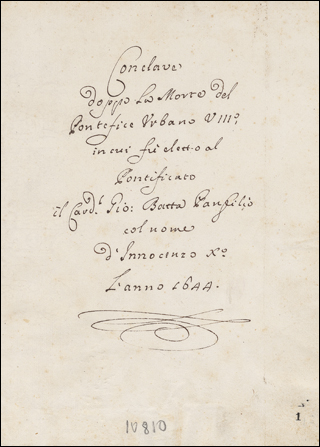 Conclave
doppo La Morte del
Pontefice Vrbano VIIIº
in cui fù eletto al
Pontificato
il Card.l Gio: Batta Panfilio
col nome
d'Innocenzo Xº
L'anno 1644.
10810
1